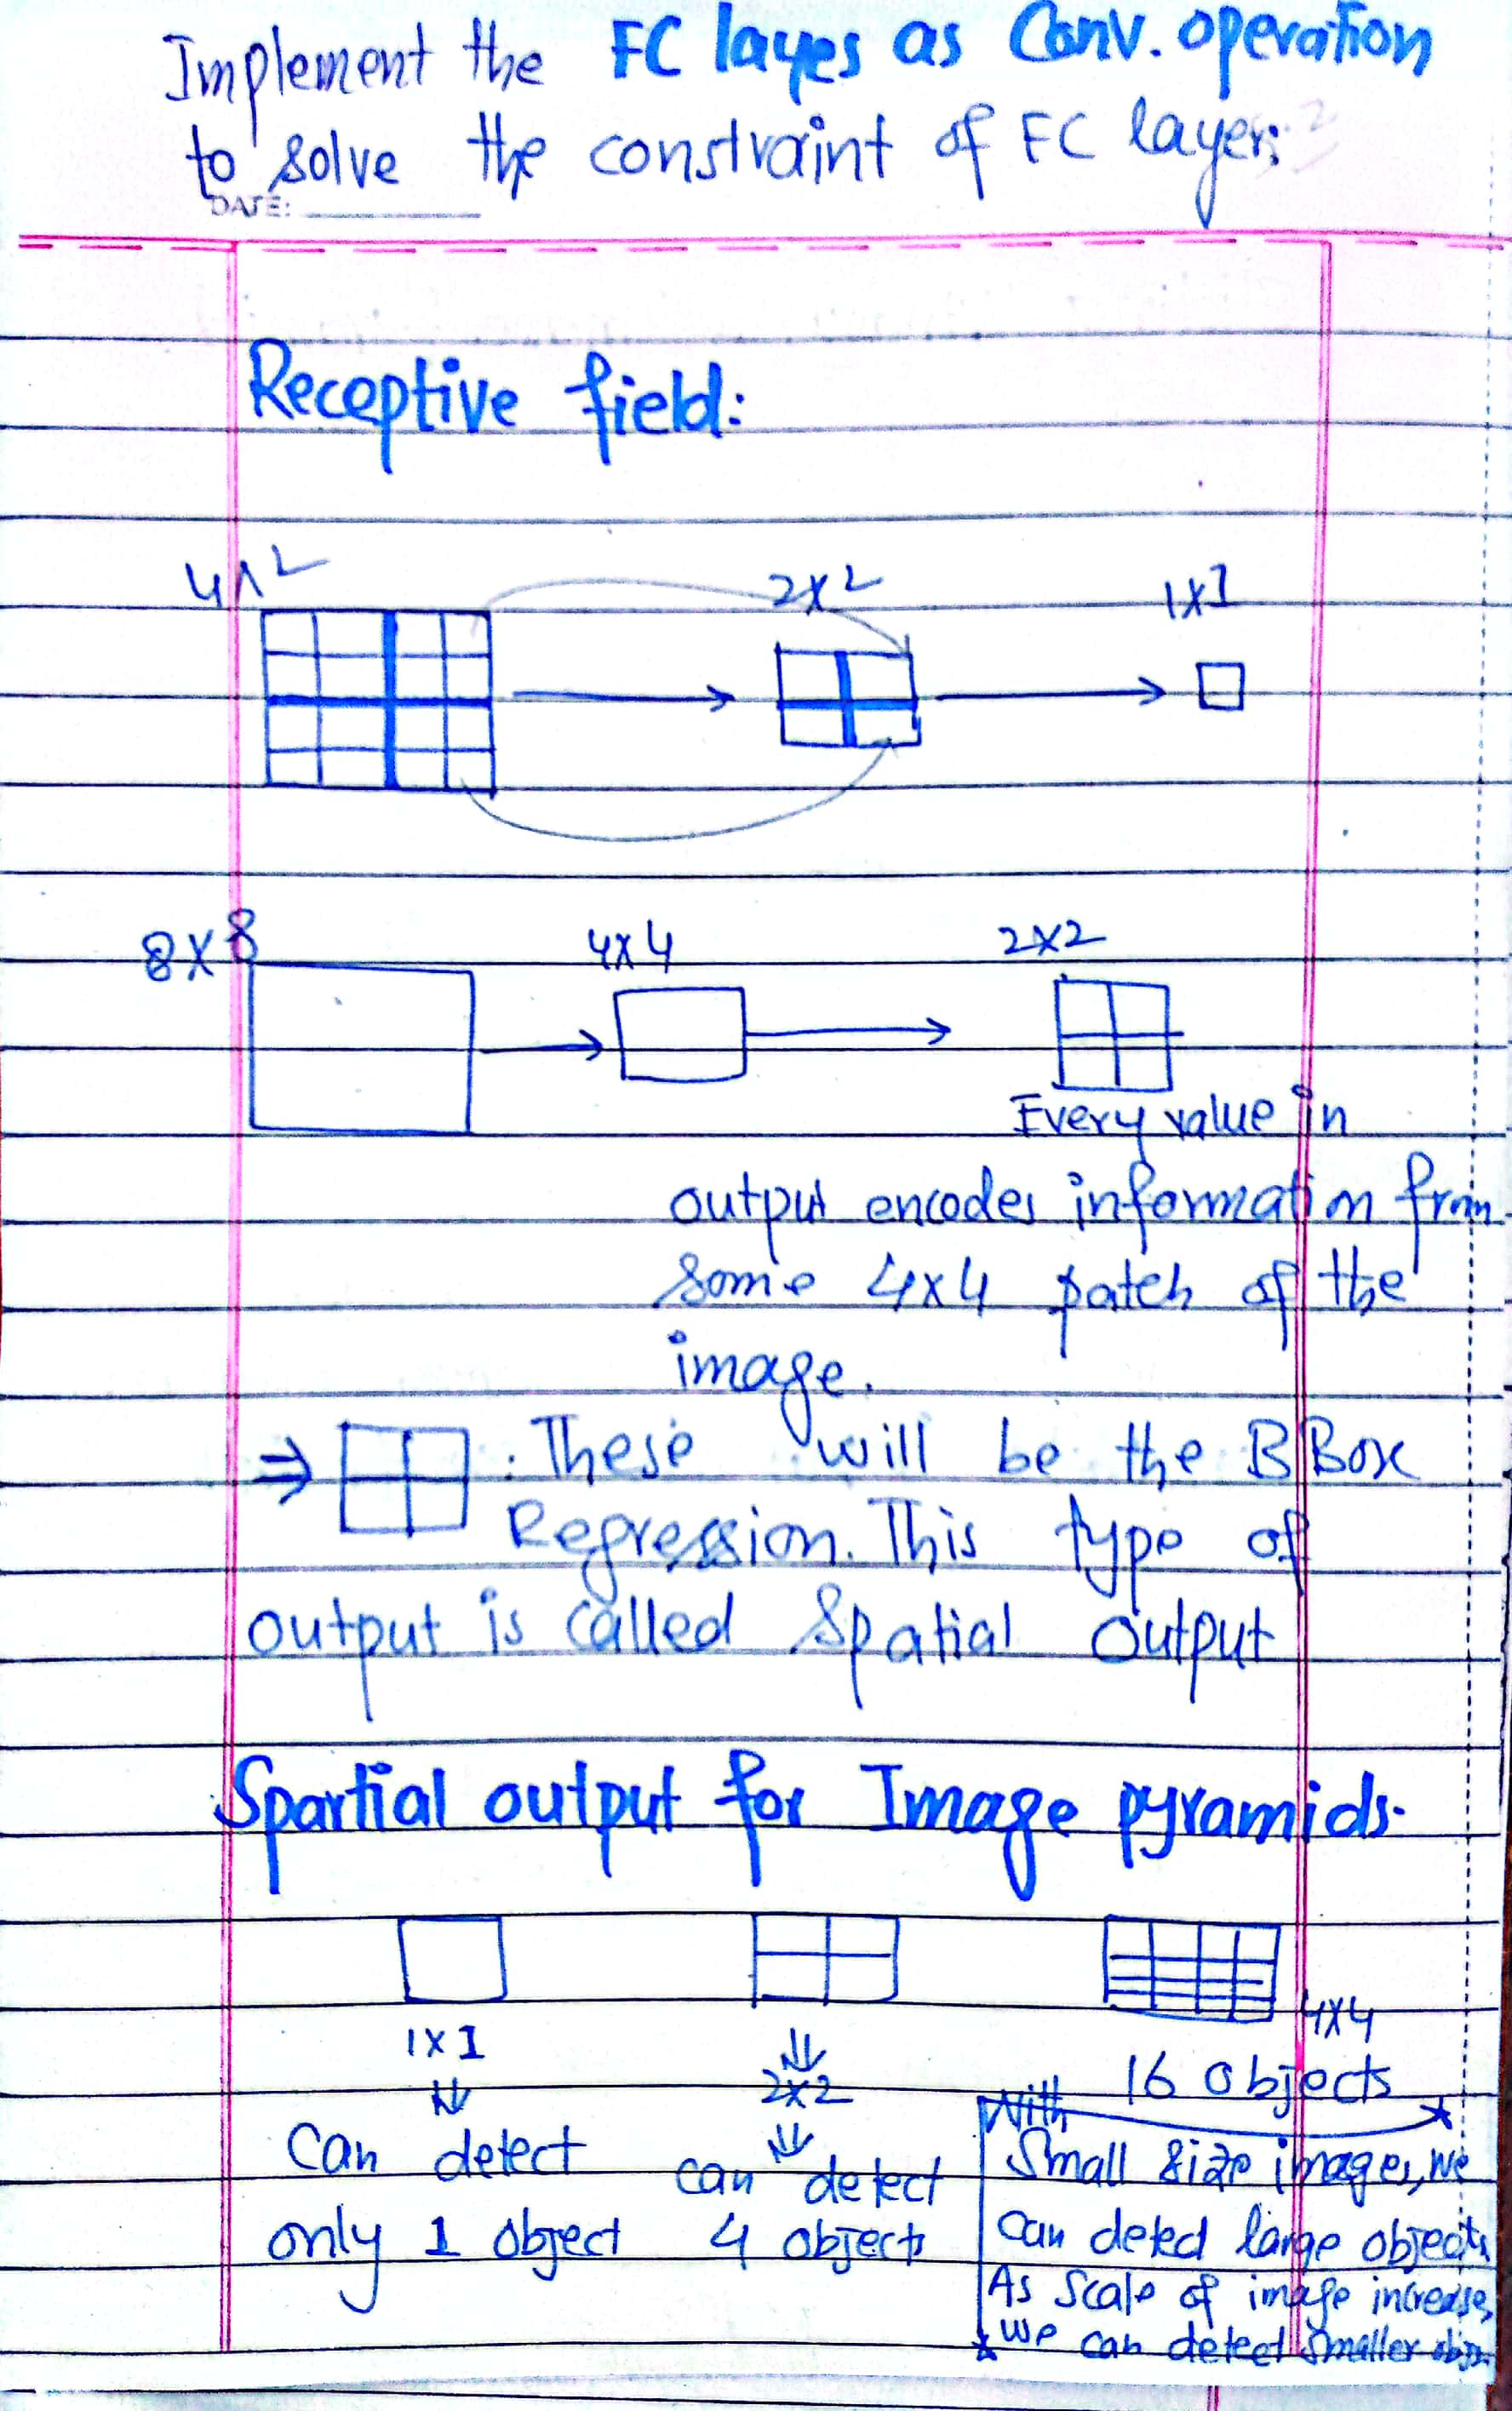 Implement the FC layes as Conv. operation
to solve the constraint of FC layer:
DATE:
Receptive field:
4x2 2x2 1x1
8x8 4x4 2x2
Every value in
output encodes information from
some 4x4 patch of the
image.
⇒ . These will be the BBox
Regression. This type of
output is called Spatial output
Spartial output for Image pyramids.
4x4
1x1 16 objects
2x2
Can detect can detect
only 1 object 4 objects
With
Small size images, we
can detect large objects
As scale of image increase,
we can detect smaller